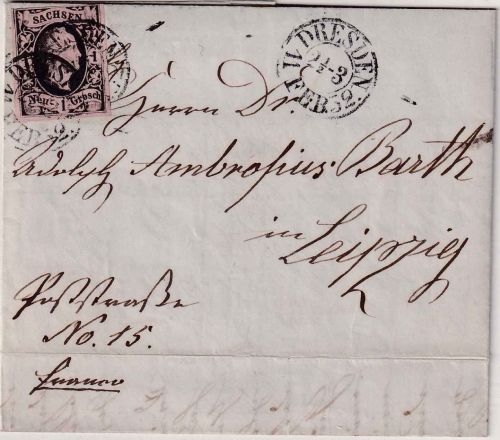 SACHSEN
1 1
Neu-1-Grosch.
W. DRESDEN.
24 3
FEB 52
Herrn Dr.
Adolph Ambrosius Barth
in Leipzig
Poststraße
No. 15.
franco